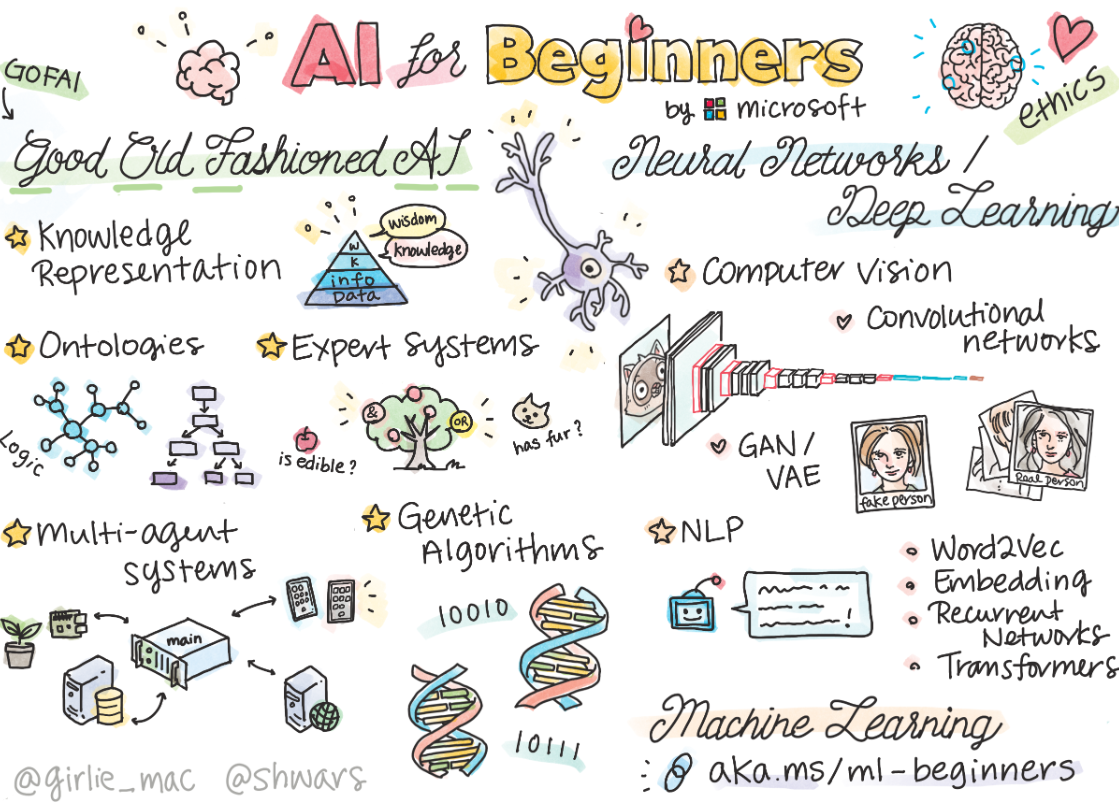 AI for Beginners
by microsoft
GOFAI
ethics
Good Old Fashioned AI
Knowledge
Representation
wisdom
knowledge
W
K
info
Data
Ontologies
Logic
Expert Systems
&
OR
is edible?
has fur?
Multi-agent
systems
main
Genetic
Algorithms
10010
10111
Neural Networks /
Deep Learning
Computer Vision
Convolutional
networks
GAN/
VAE
fake person
Real person
NLP
Word2Vec
Embedding
Recurrent
Networks
Transformers
Machine Learning
aka.ms/ml-beginners
@girlie_mac @shwars